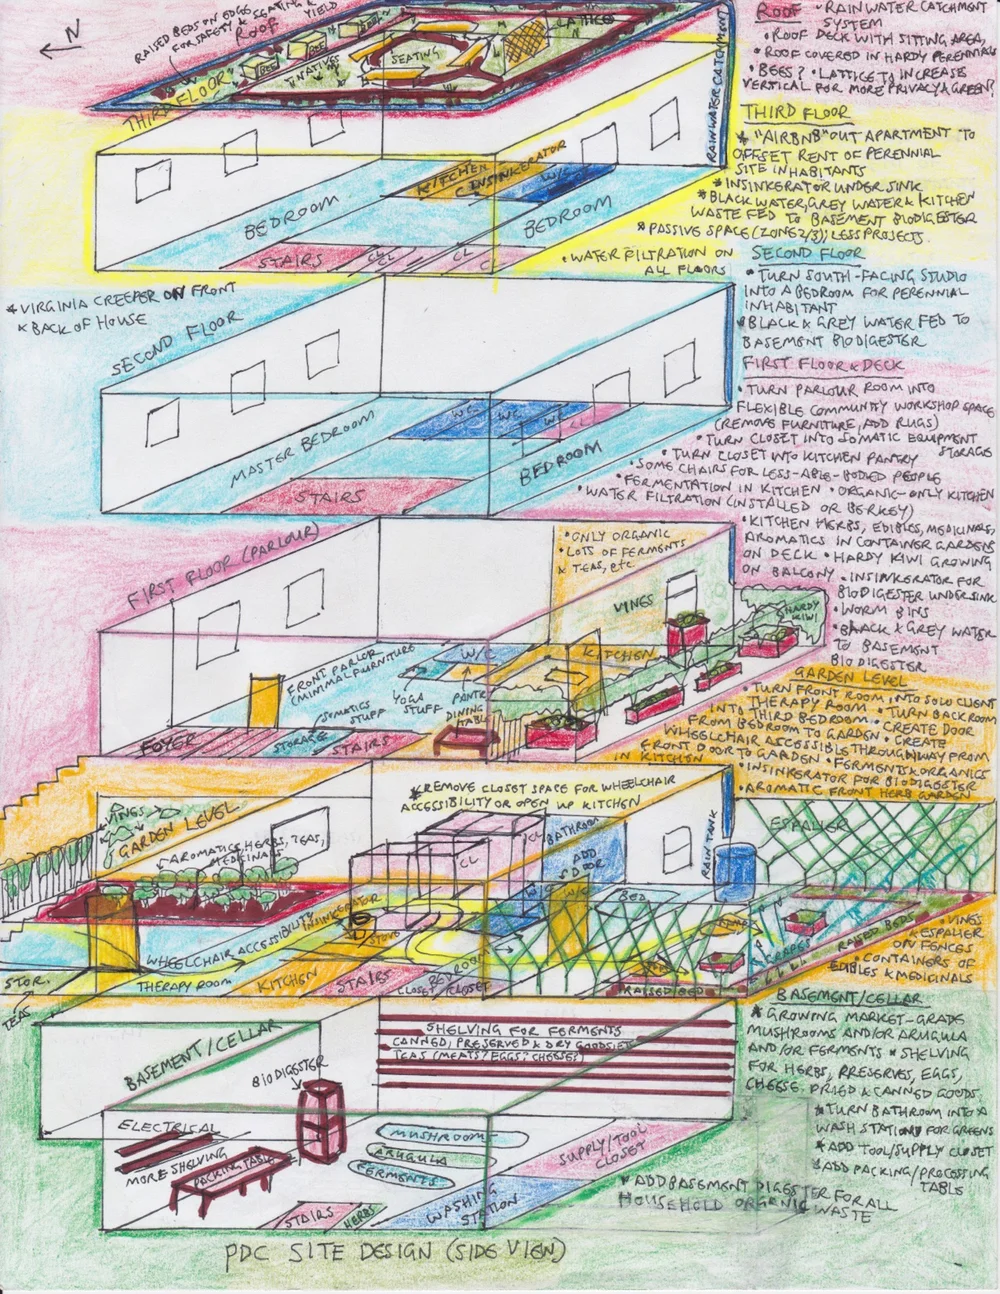 N
RAISED BEDS ON EDGES
FOR SAFETY & SEATING &
YIELD
ROOF
BEE
BEE
BEE
NATIVES
SEATING
LATTICE
RAINWATER CATCHMENT
ROOF
• RAINWATER CATCHMENT
SYSTEM
• ROOF DECK WITH SITTING AREA,
• ROOF COVERED IN HARDY PERENNIALS
• BEES? • LATTICE TO INCREASE
VERTICAL FOR MORE PRIVACY & GREEN?
THIRD FLOOR
KITCHEN
C INSINKERATOR
W/C
BEDROOM
BEDROOM
STAIRS
CL
CL
C
THIRD FLOOR
* "AIRBNB" OUT APARTMENT TO
OFFSET RENT OF PERENNIAL
SITE INHABITANTS
* INSINKERATOR UNDER SINK
* BLACK WATER, GREY WATER & KITCHEN
WASTE FED TO BASEMENT BIODIGESTER
* PASSIVE SPACE (ZONE 2/3), LESS PROJECTS.
• WATER FILTRATION ON
ALL FLOORS
* VIRGINIA CREEPER ON FRONT
& BACK OF HOUSE
SECOND FLOOR
W/C
W/C
W
CL
MASTER BEDROOM
BEDROOM
STAIRS
SECOND FLOOR
* TURN SOUTH-FACING STUDIO
INTO A BEDROOM FOR PERENNIAL
INHABITANT
* BLACK & GREY WATER FED TO
BASEMENT BIODIGESTER
FIRST FLOOR & DECK
• TURN PARLOUR ROOM INTO
FLEXIBLE COMMUNITY WORKSHOP SPACE
(REMOVE FURNITURE, ADD RUGS)
• TURN CLOSET INTO SOMATIC EQUIPMENT
STORAGE
• TURN CLOSET INTO KITCHEN PANTRY
• SOME CHAIRS FOR LESS-ABLE-BODIED PEOPLE
• FERMENTATION IN KITCHEN • ORGANIC-ONLY KITCHEN
• WATER FILTRATION (INSTALLED OR BERKEY)
• KITCHEN HERBS, EDIBLES, MEDICINALS,
AROMATICS IN CONTAINER GARDENS
ON DECK • HARDY KIWI GROWING
ON BALCONY • INSINKERATOR FOR
BIODIGESTER UNDER SINK
• WORM BINS
• BLACK & GREY WATER
TO BASEMENT
BIODIGESTER
FIRST FLOOR (PARLOUR)
• ONLY ORGANIC
• LOTS OF FERMENTS
& TEAS, etc
VINES
HARDY
KIWI
KITCHEN
W/C
FRONT PARLOR
(MINIMAL FURNITURE
YOGA
STUFF
PANTR
DINING
TABL
SOMATICS
STUFF
STORAGE
STAIRS
FOYER
GARDEN LEVEL
• TURN FRONT ROOM INTO SOLO CLIENT
THERAPY ROOM • TURN BACK ROOM
INTO THIRD BEDROOM • CREATE DOOR
FROM BEDROOM TO GARDEN • CREATE
WHEELCHAIR ACCESSIBLE THROUGHWAY FROM
FRONT DOOR TO GARDEN • FERMENTS & ORGANICS
IN KITCHEN
• INSINKERATOR FOR BIODIGESTER
• AROMATIC FRONT HERB GARDEN
* REMOVE CLOSET SPACE FOR WHEELCHAIR
ACCESSIBILITY OR OPEN UP KITCHEN
VINES
GARDEN LEVEL
* AROMATICS, HERBS, TEAS,
MEDICINALS
CL
CL
BATHROOM
ADD
DOOR
W/C
BED
RAIN TANK
ESPALIER
INSINKERATOR
STOVE
WHEELCHAIR ACCESSIBILITY
STOR.
TEAS
THERAPY ROOM
KITCHEN
STAIRS
CLOSET/CLOSET
GRAPES
RAISED BEDS
RAISED BED
• VINES
& ESPALIER
ON FENCES
• CONTAINERS OF
EDIBLES & MEDICINALS
BASEMENT/CELLAR
SHELVING FOR FERMENTS
CANNED, PRESERVED & DRY GOODS, ETC
TEAS (MEATS? EGGS? CHEESE?)
BIODIGESTER
ELECTRICAL
MORE SHELVING
PACKING TABLE
MUSHROOM
ARUGULA
FERMENTS
SUPPLY/TOOL
CLOSET
WASHING
STATION
STAIRS
HERBS
BASEMENT/CELLAR
* GROWING MARKET-GRADE
MUSHROOMS AND/OR ARUGULA
AND/OR FERMENTS * SHELVING
FOR HERBS, PRESERVES, EGGS,
CHEESE, DRIED & CANNED GOODS.
* TURN BATHROOM INTO A
WASH STATION FOR GREENS
* ADD TOOL/SUPPLY CLOSET
* ADD PACKING/PROCESSING
TABLE
* ADD BASEMENT DIGESTER FOR ALL
HOUSEHOLD ORGANIC WASTE
PDC SITE DESIGN (SIDE VIEW)